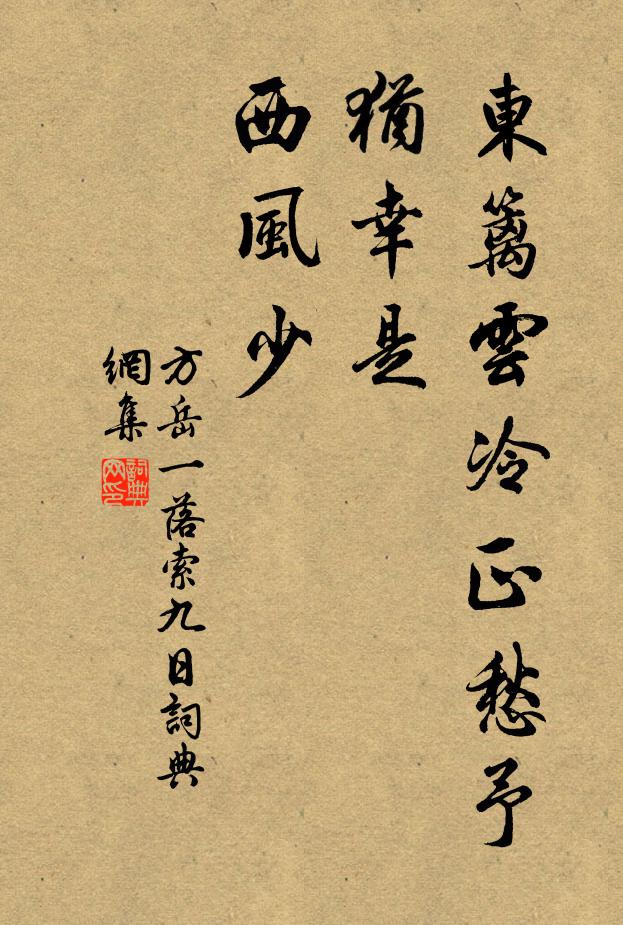 東籬雲冷正愁予
猶幸是
西風少
方岳一落索九日詞典
網集
詞典
网印